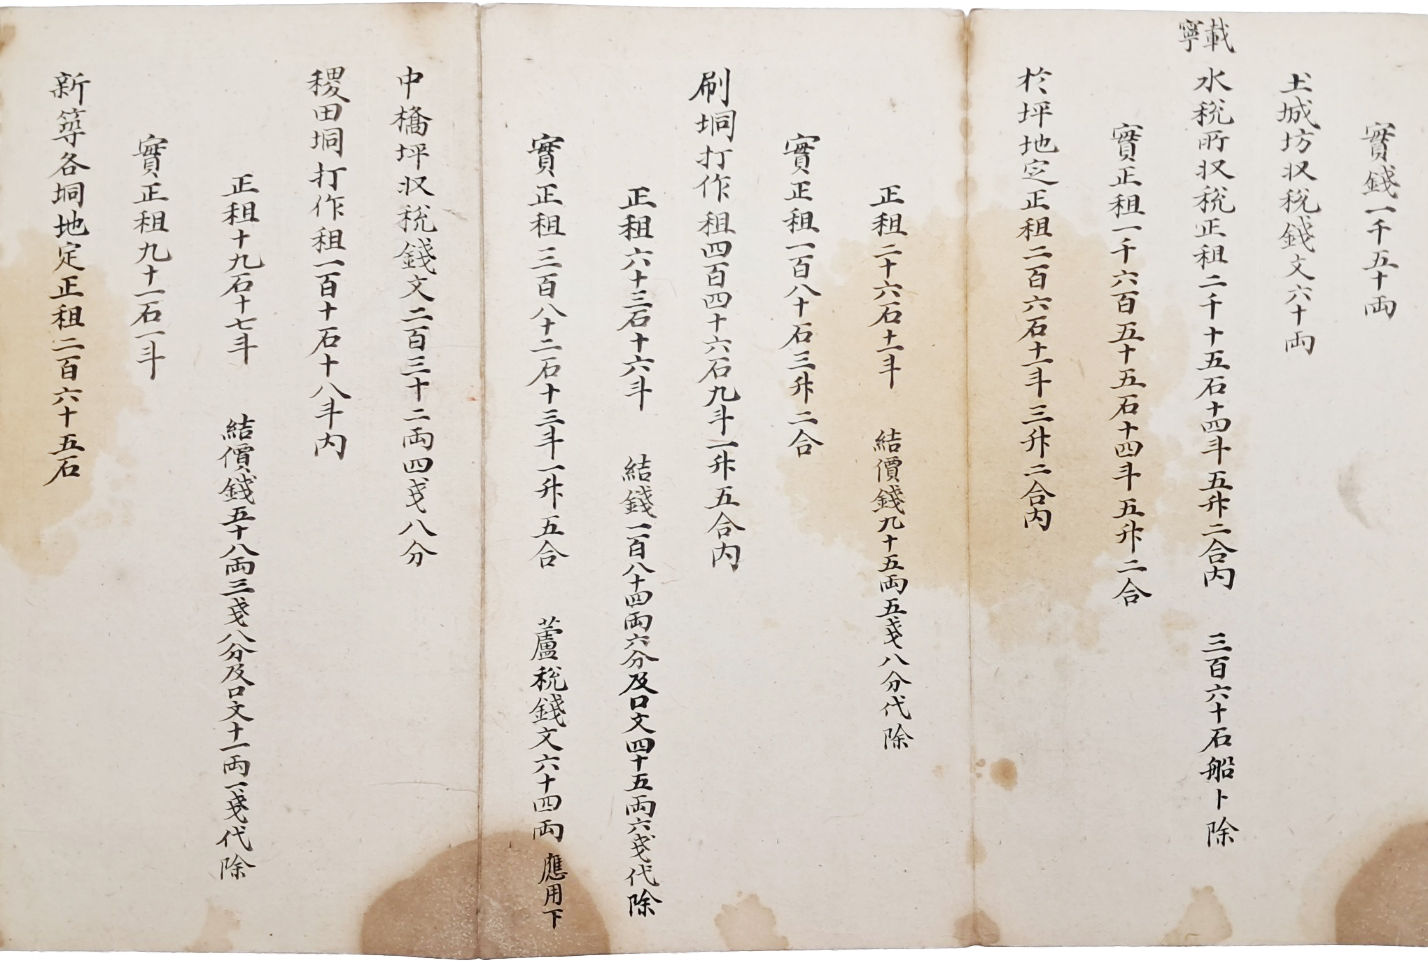 實錢一千五十両
土城坊収稅錢文六十両
載寧
水稅所収稅正租二千十五石十四斗五升二合內 三百六十石船卜除
實正租一千六百五十五石十四斗五升二合
於坪地定正租二百六石十一斗三升二合內
正租二十六石十一斗 結價錢九十五両五戔八分代除
實正租一百八十石三升二合
刷垌打作租四百四十六石九斗一升五合內
正租六十三石十六斗 結錢一百八十四両六分及口文四十五両六戔代除
實正租三百八十二石十三斗一升五合 蘆稅錢文六十四両 應用下
中橋坪収稅錢文二百三十二両四戔八分
稷田垌打作租一百十石十八斗內
正租十九石十七斗 結價錢五十八両三戔八分及口文十一両一戔代除
實正租九十一石一斗
新筭各垌地定正租二百六十五石